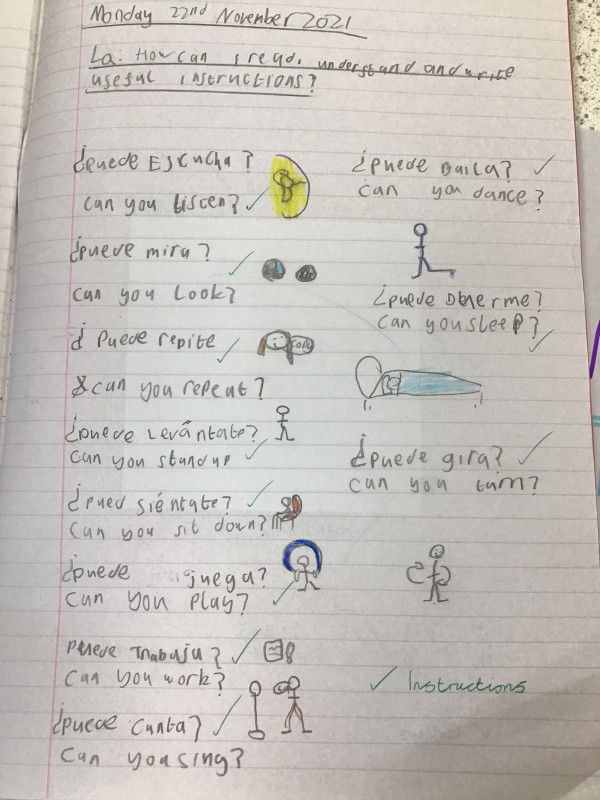 Monday 22nd November 2021
La: How can I read, understand and write
useful instructions?
¿puede Escucha?
can you Listen?
¿puede mira?
can you Look?
¿ Puede repite
can you repeat?
¿puede Levántate?
can you stand up
¿pued siéntate?
can you sit down?
¿puede juega?
can you play?
puede Trabaja?
can you work?
¿puede canta?
can you sing?
¿puede Baila?
can you dance?
¿puede Duerme?
can you sleep?
¿puede gira?
can you turn?
✓ Instructions